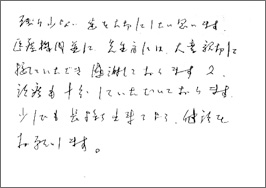 残り少ない 生を大切にしたい思います。
医療機関並に 先生方には、大変親切に
接していただき 感謝しております 又、
治療も十分していただいております。
少しでも長生き出来てよう、健康を
お願いします。